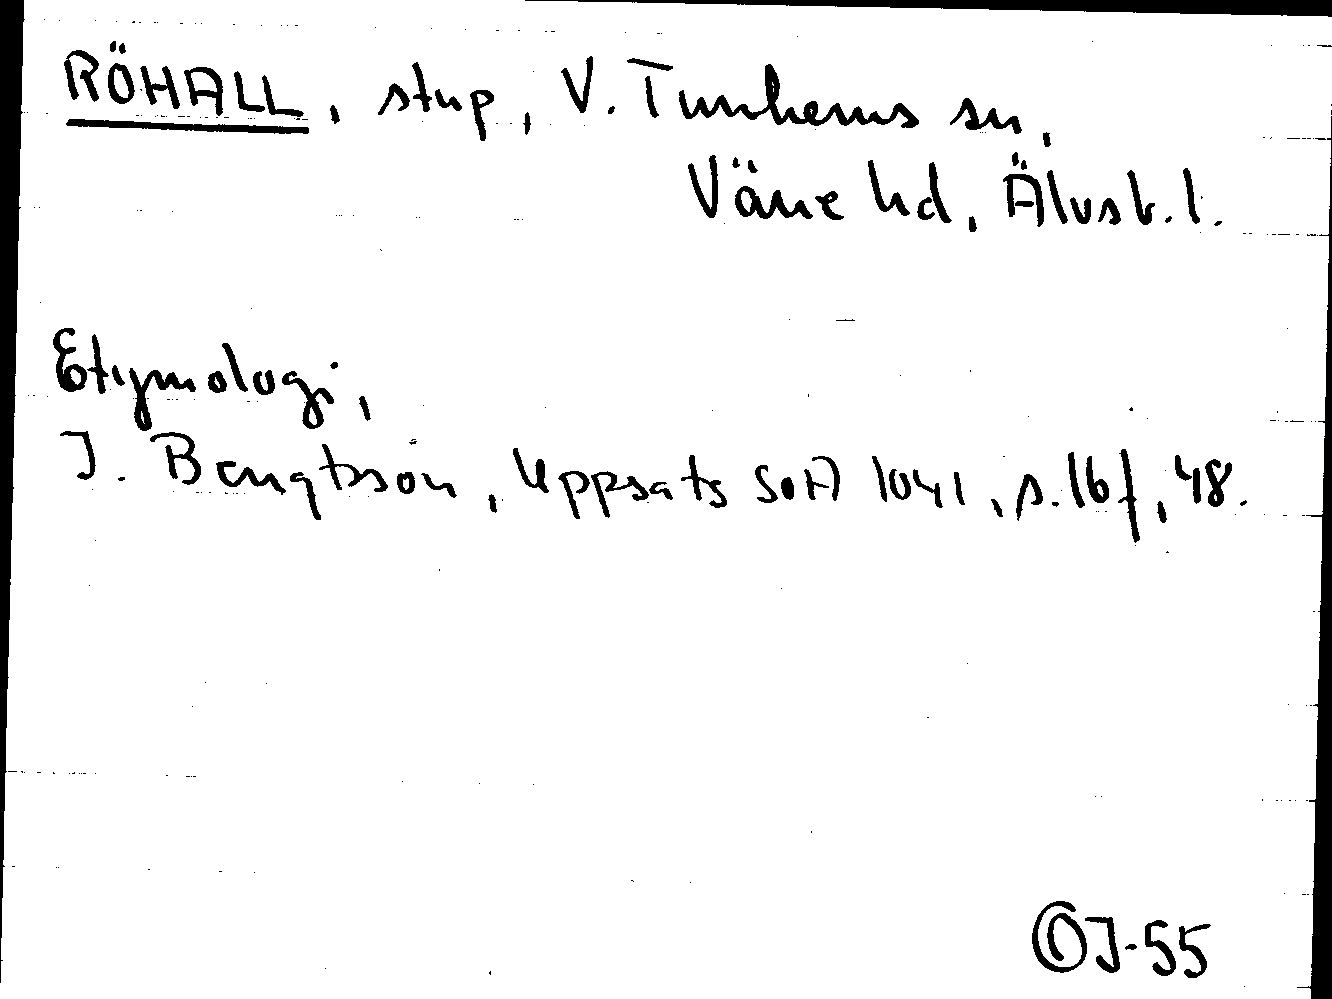 RÖHALL, stup, V. Tunhems sn,
Väne hd, Älvsb. l.
Etymologi,
J. Bengtsson, Uppsats SOA 1041, s. 16 f, 48.
J-55